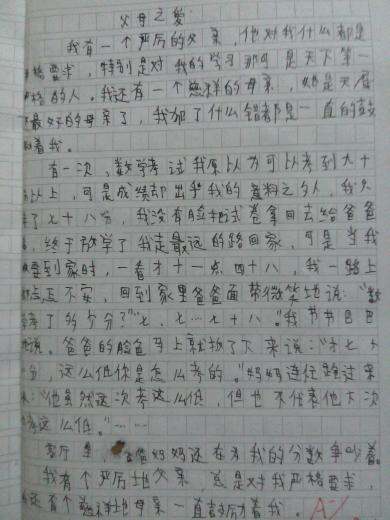 父母之爱
我有一个严厉的父亲，他对我什么都是
格要求，特别是对我的学习那可是天下第一
严格的人。我还有一个慈祥的母亲，她是天底
下最好的母亲了，我犯了什么错都是一直的鼓
励着我。
有一次，数学考试我原以为可以考到九十
分以上，可是成绩却出乎我的意料之外，我只
考了七十八分，我没有脸把试卷拿回去给爸爸
看，终于放学了我走最远的路回家，可是当我
要到家时，一看才十一点四十八，我一路上
忐忑不安，回到家里爸爸面带微笑地说："数
学考了多少分？""七，七……七十八。"我节节巴巴
地说。爸爸的脸色马上就拉了下来说："才七十
八分，这么低你是怎么考的。"妈妈连忙跑过来
说："他虽然这次考这么低，但也不代表他下次
考这么低。"……
客厅里 爸妈妈还在为我的分数争吵着。
我有个严厉地父亲，总是对我严格要求，
我还有个慈祥地母亲一直鼓励着我。
A-